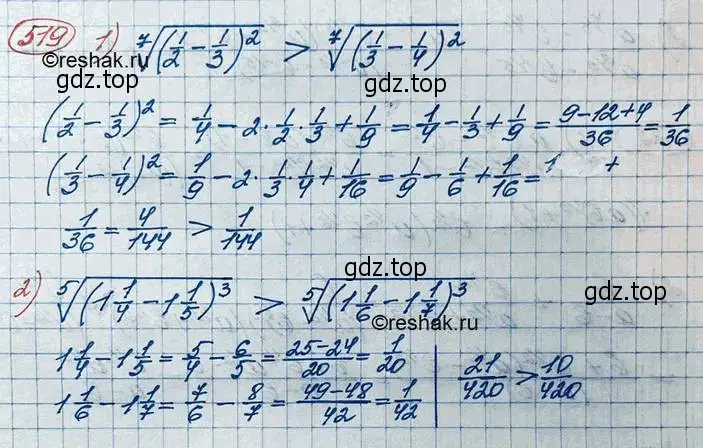 519 1) ⁷√(1/2 − 1/3)² > ⁷√(1/3 − 1/4)²
©reshak.ru
gdz.top
(1/2 − 1/3)² = 1/4 − 2·1/2·1/3 + 1/9 = 1/4 − 1/3 + 1/9 = (9−12+4)/36 = 1/36
(1/3 − 1/4)² = 1/9 − 2·1/3·1/4 + 1/16 = 1/9 − 1/6 + 1/16 =
1/36 = 4/144 > 1/144
gdz.top
2) ⁵√(1 1/4 − 1 1/5)³ > ⁵√(1 1/6 − 1 1/7)³
©reshak.ru
1 1/4 − 1 1/5 = 5/4 − 6/5 = (25−24)/20 = 1/20
1 1/6 − 1 1/7 = 7/6 − 8/7 = (49−48)/42 = 1/42
21/420 > 10/420
gdz.top